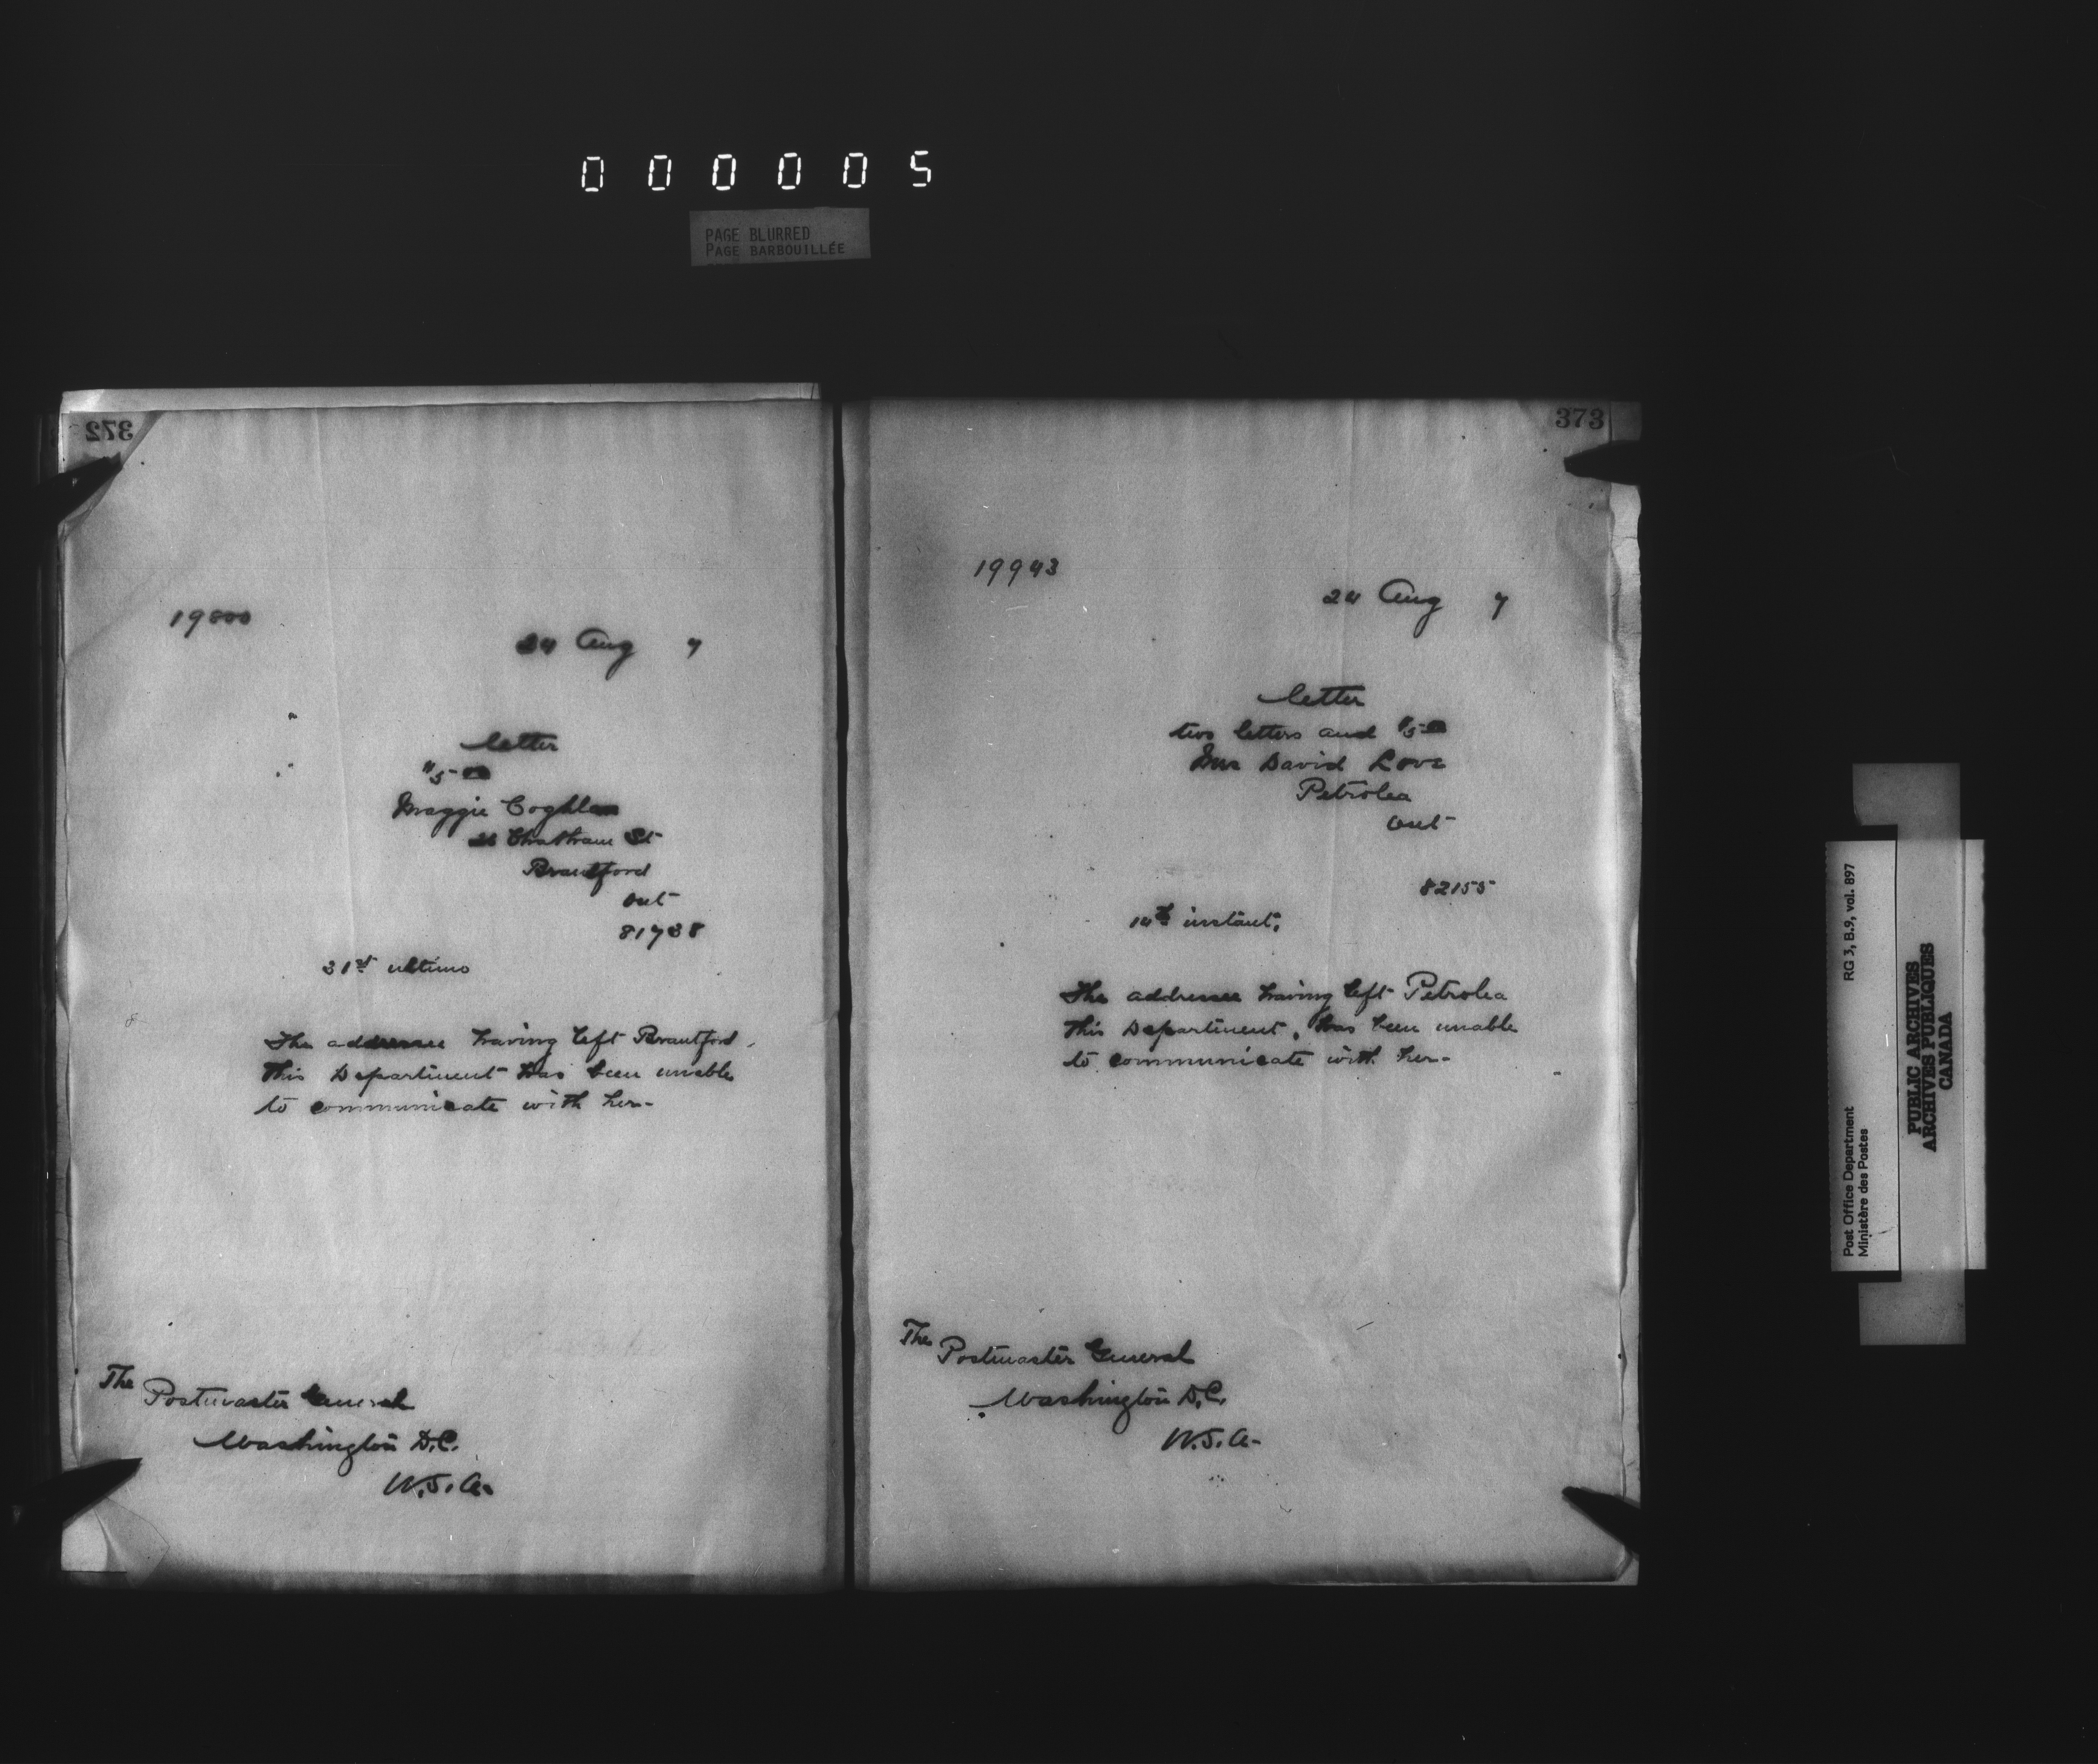 000005
PAGE BLURRED
PAGE BARBOUILLÉE
372
19800
24 Aug 7
letter
$5.00
Maggie Coghlan
Chatham St
Brantford
Ont
81738
31st ultimo
The addressee having left Brantford,
this Department has been unable
to communicate with her-
The
Postmaster General
Washington D.C.
U.S.A-
373
19943
24 Aug 7
letter
two letters and $5.00
Mrs David Love
Petrolea
Ont
82155
14th instant,
The addressee having left Petrolea
this Department, has been unable
to communicate with her-
The
Postmaster General
Washington D.C.
U.S.A-
Post Office Department RG 3, B.9, vol. 897
Ministère des Postes
PUBLIC ARCHIVES
ARCHIVES PUBLIQUES
CANADA